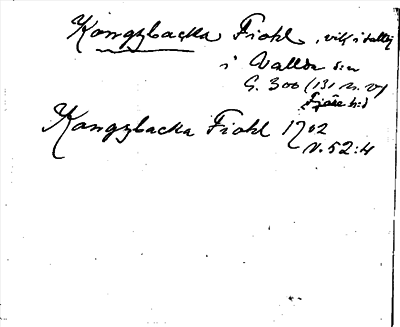 Kongzbacka Fiohl, vik i Halld
i Vallda sn
G. 300 (131 n. v)
Fjäre hd
Kongzbacka Fiohl 1702
N. 52:4